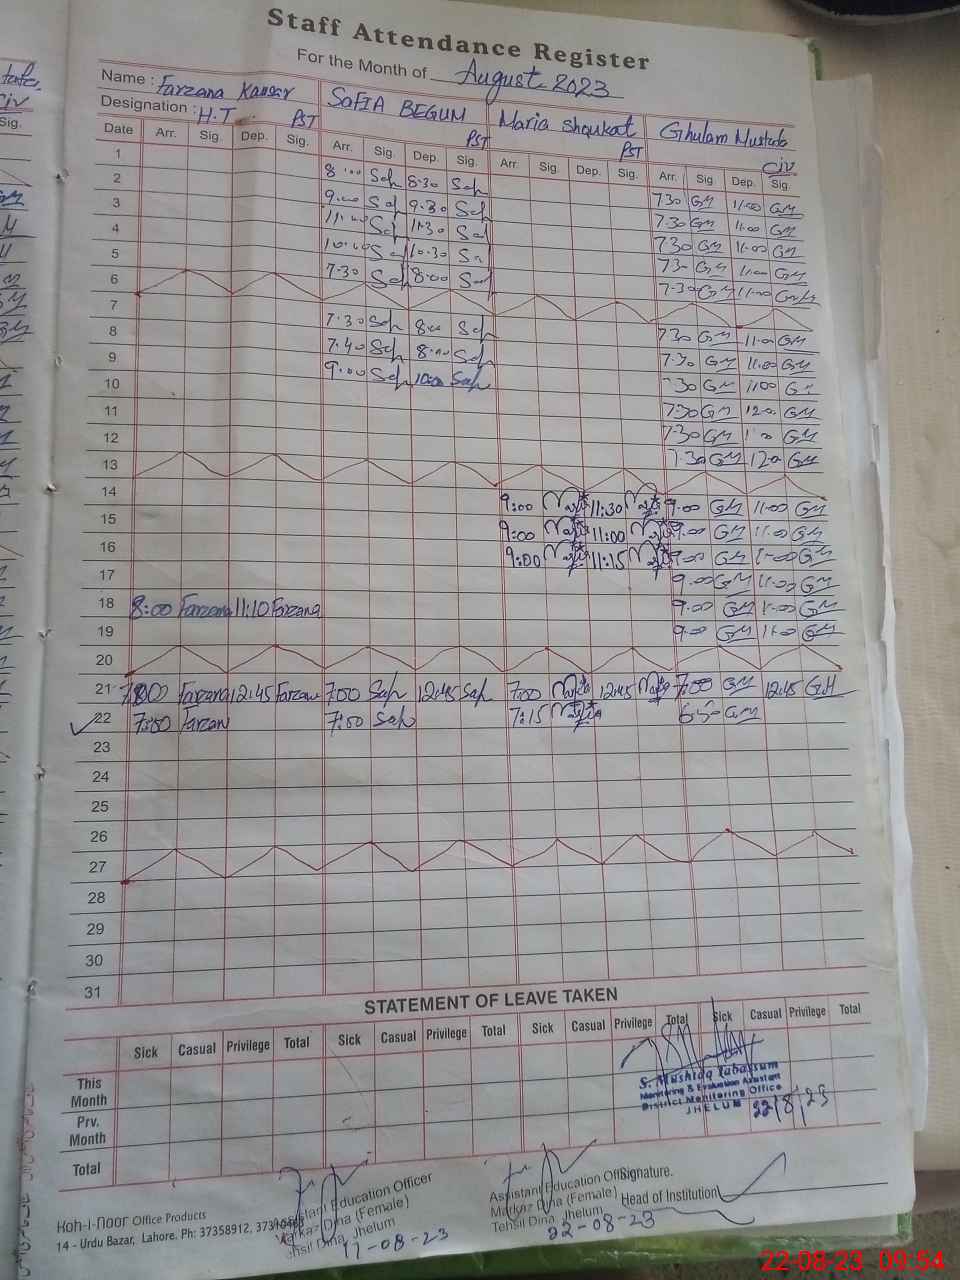 Staff Attendance Register
For the Month of August 2023
Name : Farzana Kausar SOFIA BEGUM Maria Shoukat Ghulam Mustafa
Designation : H.T PST PST PST Civ
Date Arr. Sig. Dep. Sig. Arr. Sig. Dep. Sig. Arr. Sig. Dep. Sig. Arr. Sig. Dep. Sig.
1 8.00 Sof 8.30 Sof 7.30 GM 11.00 GM
2 9.00 Sof 9.30 Sof 7.30 GM 11.00 GM
3 11.00 Sof 11.30 Sof 7.30 GM 11.00 GM
4 10.00 Sof 10.30 7.30 GM 11.00 GM
5 7.30 Sof 8.00 Sof 7.30 GM 11.00 GM
6
7 7.30 Sof 8.00 Sof 7.30 GM 11.00 GM
8 7.40 Sof 8.00 Sof 7.30 GM 11.00 GM
9 9.00 Sof 10.00 Sof 7.30 GM 11.00 GM
10 7.30 GM 12.00 GM
11 7.30 GM GM
12 7.30 GM 12.00 GM
13
14 9:00 11:30 9.00 GM 11.00 GM
15 9:00 11:00 9.00 GM 11.00 GM
16 9:00 11:15 9.00 GM 11.00 GM
17 9.00 GM 11.00 GM
18 8:00 Farzana 11:10 Farzana 9.00 GM 11.00 GM
19 9.00 GM 11.00 GM
20
21 Farzana 12:45 Farzan 7:00 Sof 12:45 Sof 7:00 12:45 7:00 GM 12:45 GM
22 7:00 Farzan 7:00 Sof 7:15 6.50 GM
23
24
25
26
27
28
29
30
31
STATEMENT OF LEAVE TAKEN
Sick Casual Privilege Total Sick Casual Privilege Total Sick Casual Privilege Total Sick Casual Privilege Total
This Month
Prv. Month
Total
S. Mushtaq Tabassum
Monitoring & Evaluation Assistant
District Monitoring Office
JHELUM 22/8/23
Assistant Education Officer
Markaz Dina (Female)
Tehsil Dina, Jhelum
17-08-23
Assistant Education Officer
Markaz Dina (Female)
Tehsil Dina, Jhelum
22-08-23
Signature.
Head of Institution
Koh-i-Noor Office Products
14 - Urdu Bazar, Lahore. Ph: 37358912,
22-08-23 09:54